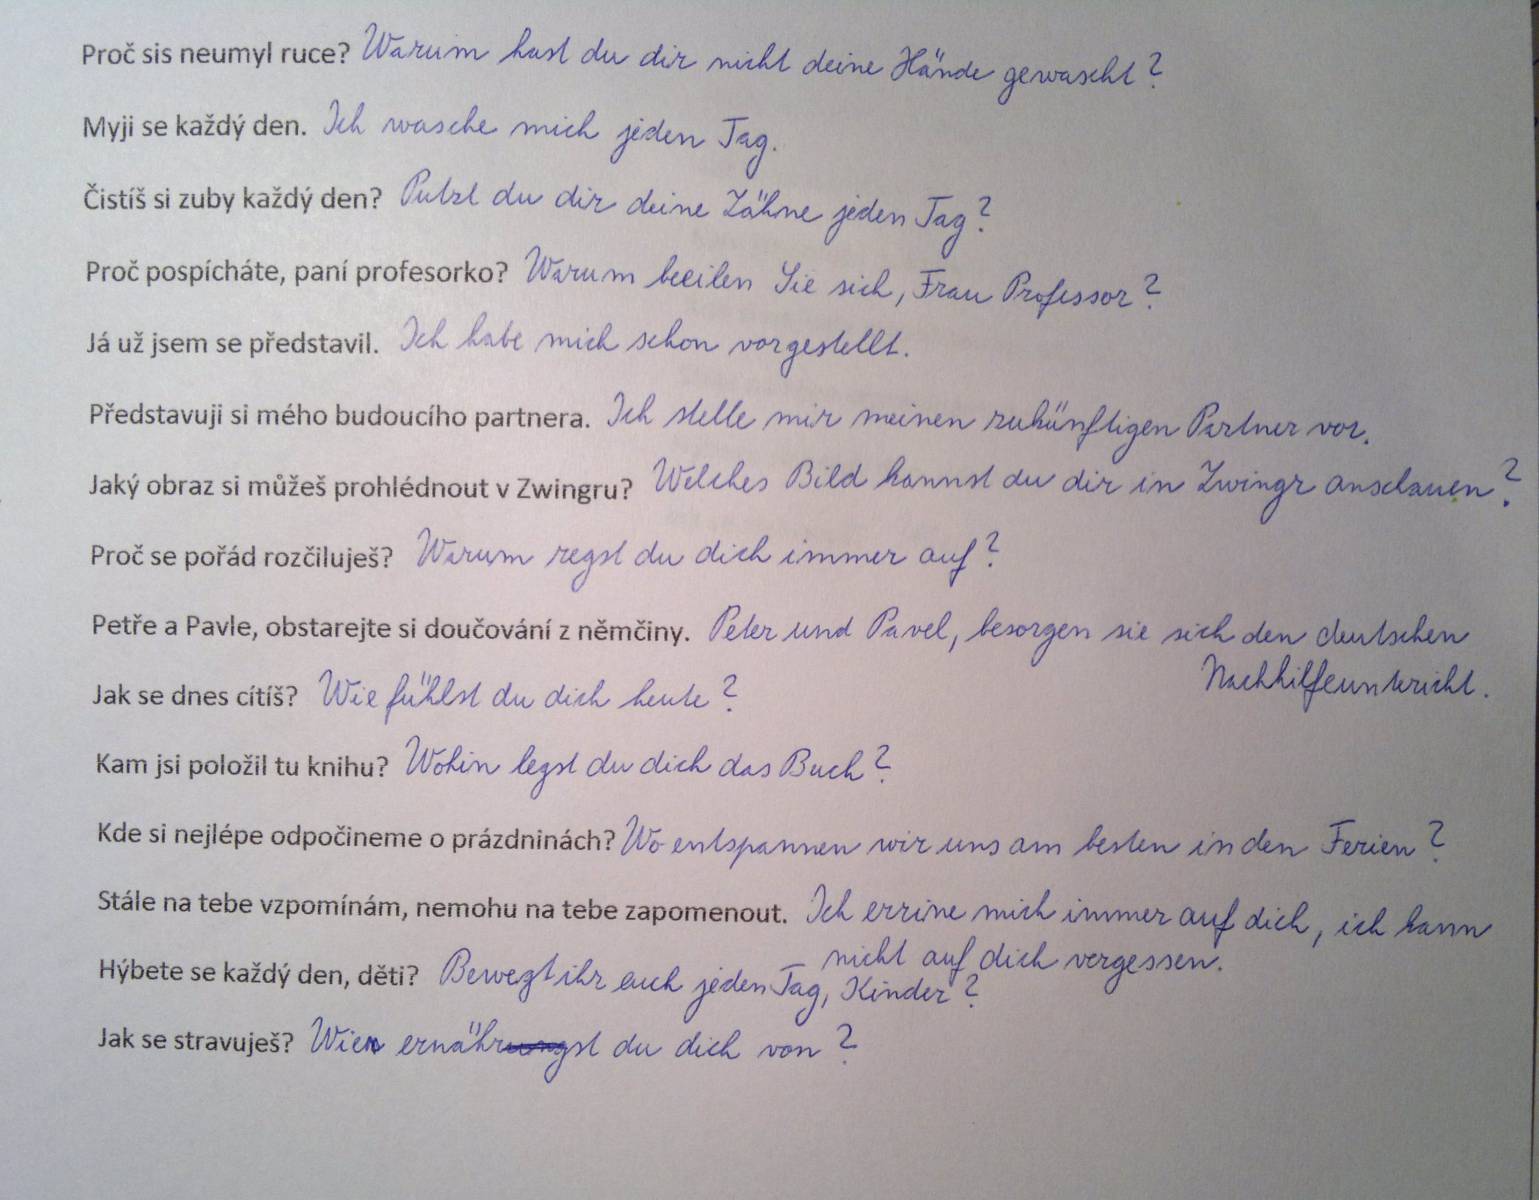 Proč sis neumyl ruce? Warum hast du dir nicht deine Hände gewascht?
Myji se každý den. Ich wasche mich jeden Tag.
Čistíš si zuby každý den? Putzt du dir deine Zähne jeden Tag?
Proč pospícháte, paní profesorko? Warum beeilen Sie sich, Frau Professor?
Já už jsem se představil. Ich habe mich schon vorgestellt.
Představuji si mého budoucího partnera. Ich stelle mir meinen zukünftigen Partner vor.
Jaký obraz si můžeš prohlédnout v Zwingru? Welches Bild kannst du dir in Zwingr anschauen?
Proč se pořád rozčiluješ? Warum regst du dich immer auf?
Petře a Pavle, obstarejte si doučování z němčiny. Peter und Pavel, besorgen sie sich den deutschen
Nachhilfeunterricht.
Jak se dnes cítíš? Wie fühlst du dich heute?
Kam jsi položil tu knihu? Wohin legst du dich das Buch?
Kde si nejlépe odpočineme o prázdninách? Wo entspannen wir uns am besten in den Ferien?
Stále na tebe vzpomínám, nemohu na tebe zapomenout. Ich errine mich immer auf dich, ich kann
nicht auf dich vergessen.
Hýbete se každý den, děti? Bewegt ihr euch jeden Tag, Kinder?
Jak se stravuješ? Wie ernährst du dich von?